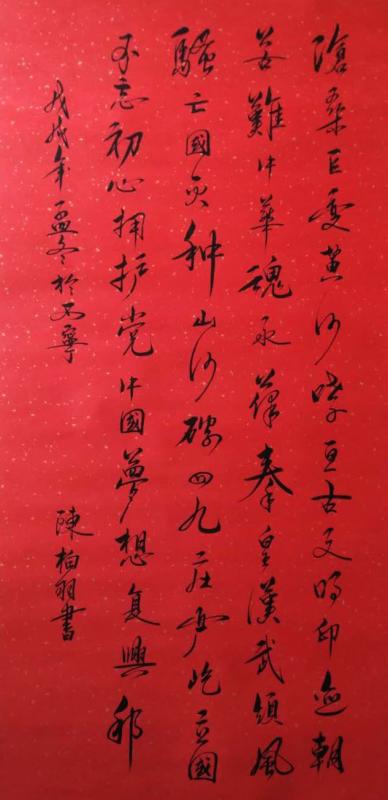 滄桑巨变黄河啸亘古文明印迹朝
苦難中華魂永葆秦皇漢武領風
騷亡國灭种山河破四九庄严屹立國
不忘初心拥护党中國夢想复興邦
戊戌年孟冬於西寧
陳柏羽書